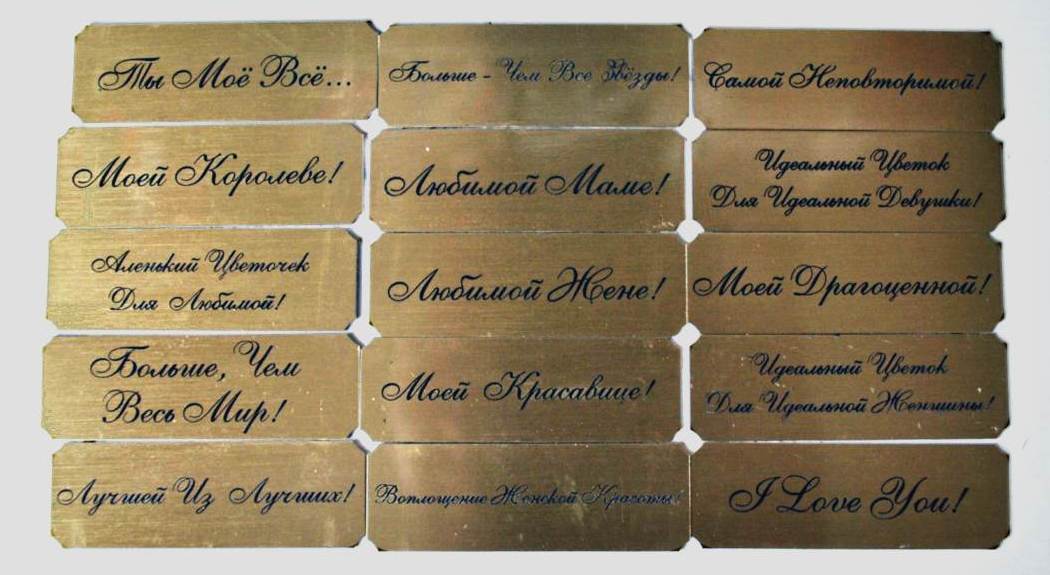 Ты Моё Всё...
Больше - Чем Все Звёзды!
Самой Неповторимой!
Моей Королеве!
Любимой Маме!
Идеальный Цветок
Для Идеальной Девушки!
Аленький Цветочек
Для Любимой!
Любимой Жене!
Моей Драгоценной!
Больше, Чем
Весь Мир!
Моей Красавице!
Идеальный Цветок
Для Идеальной Женщины!
Лучшей Из Лучших!
Воплощение Женской Красоты!
I Love You!